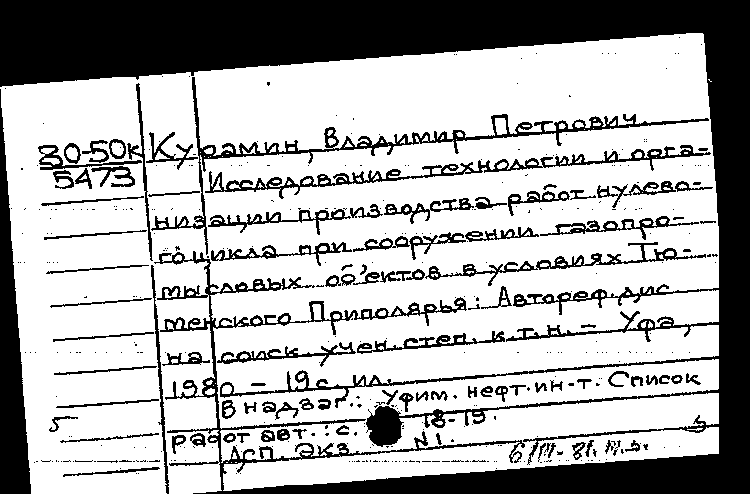 80-50к Курамин, Владимир Петрович.
5473 Исследование технологии и орга-
низации производства работ нулево-
го цикла при сооружении газопро-
мысловых об'ектов в условиях Тю-
менского Приполярья: Автореф. дис
на соиск. учен. степ. к.т.н. – Уфа,
1980 – 19 с., ил.
В надзаг.: Уфим. нефт. ин-т. Список
работ авт.: с. 18-19.
ДСП. Экз. N 1.
5